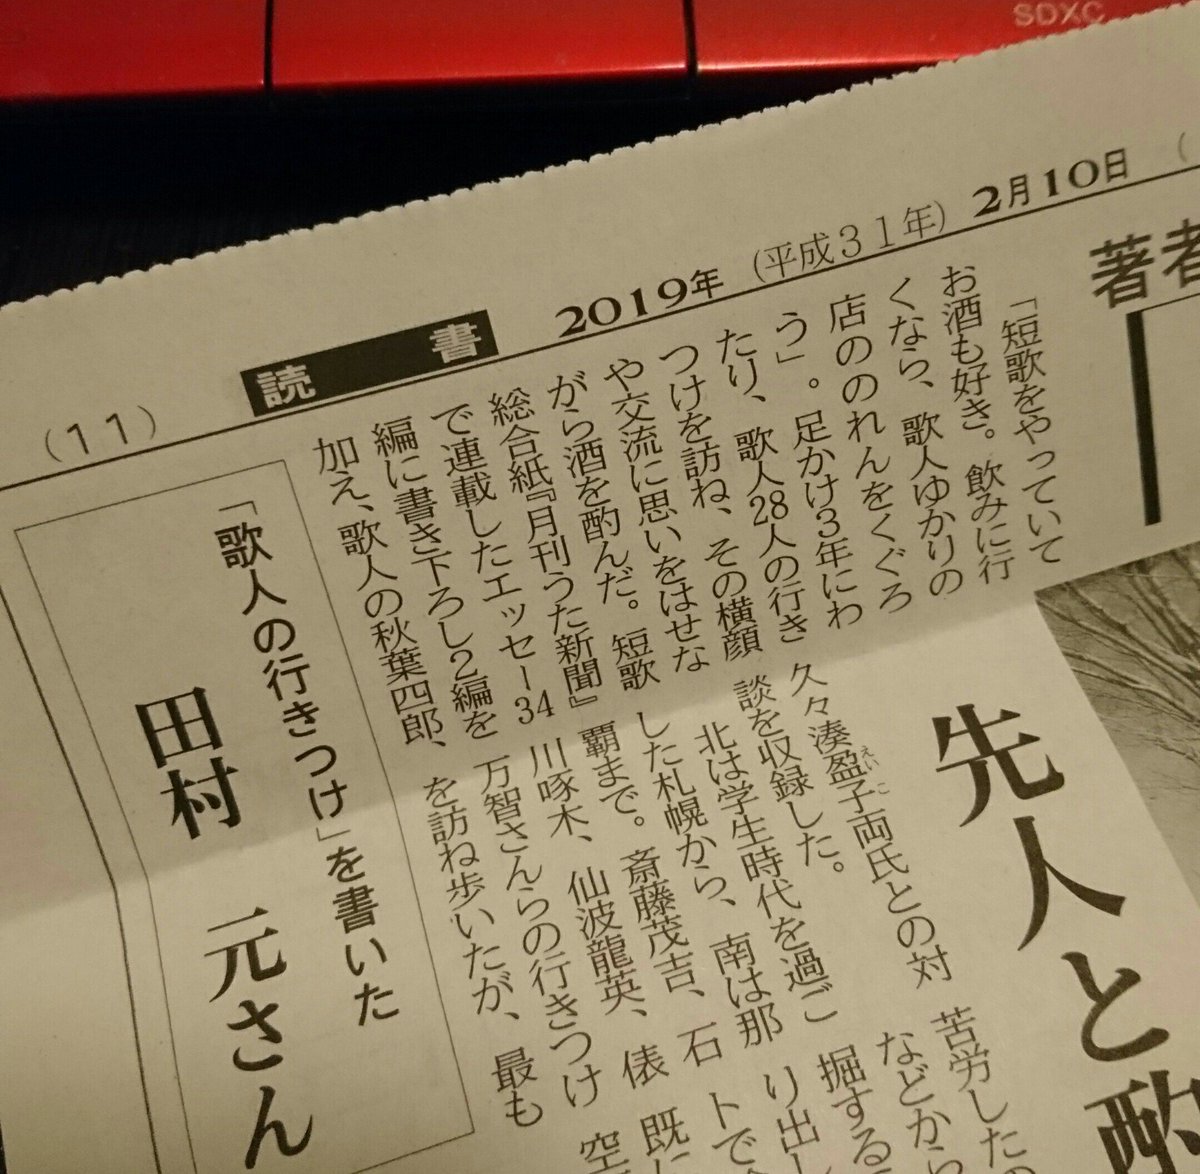 SDXC
（11）
読書
2019年
（平成31年）
2月10日
著者
「短歌をやっていて
お酒も好き。飲みに行
くなら、歌人ゆかりの
店ののれんをくぐろ
う」。足かけ3年にわ
たり、歌人28人の行き
つけを訪ね、その横顔
や交流に思いをはせな
がら酒を酌んだ。短歌
総合紙『月刊うた新聞』
で連載したエッセー34
編に書き下ろし2編を
加え、歌人の秋葉四郎、
久々湊盈子両氏との対
えいこ
談を収録した。
北は学生時代を過ご
した札幌から、南は那
覇まで。斎藤茂吉、石
川啄木、仙波龍英、俵
万智さんらの行きつけ
を訪ね歩いたが、最も
苦労した
などから
掘する
り出し
トで
既に
空
先人と酌
「歌人の行きつけ」を書いた
田村 元さん